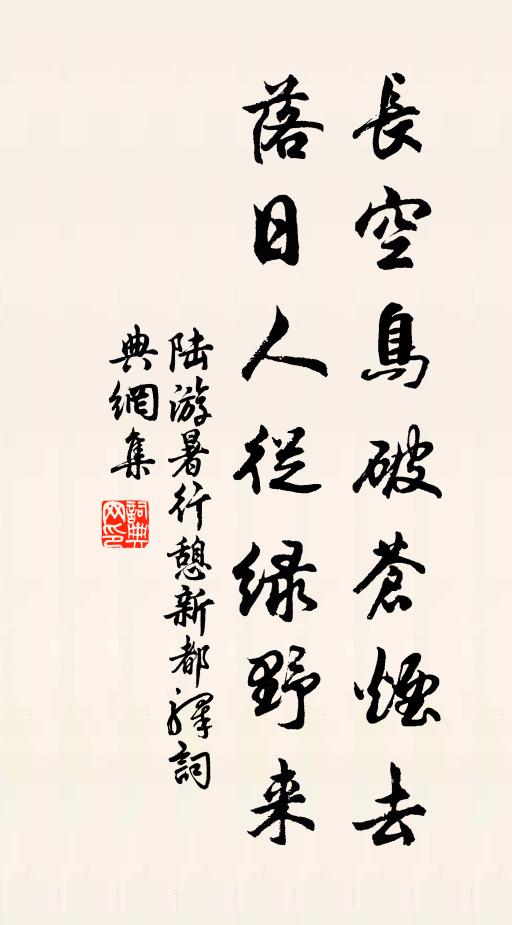 長空鳥破蒼煙去
落日人從緑野来
陸游暑行憩新都驛詞
典網集
詞典网印